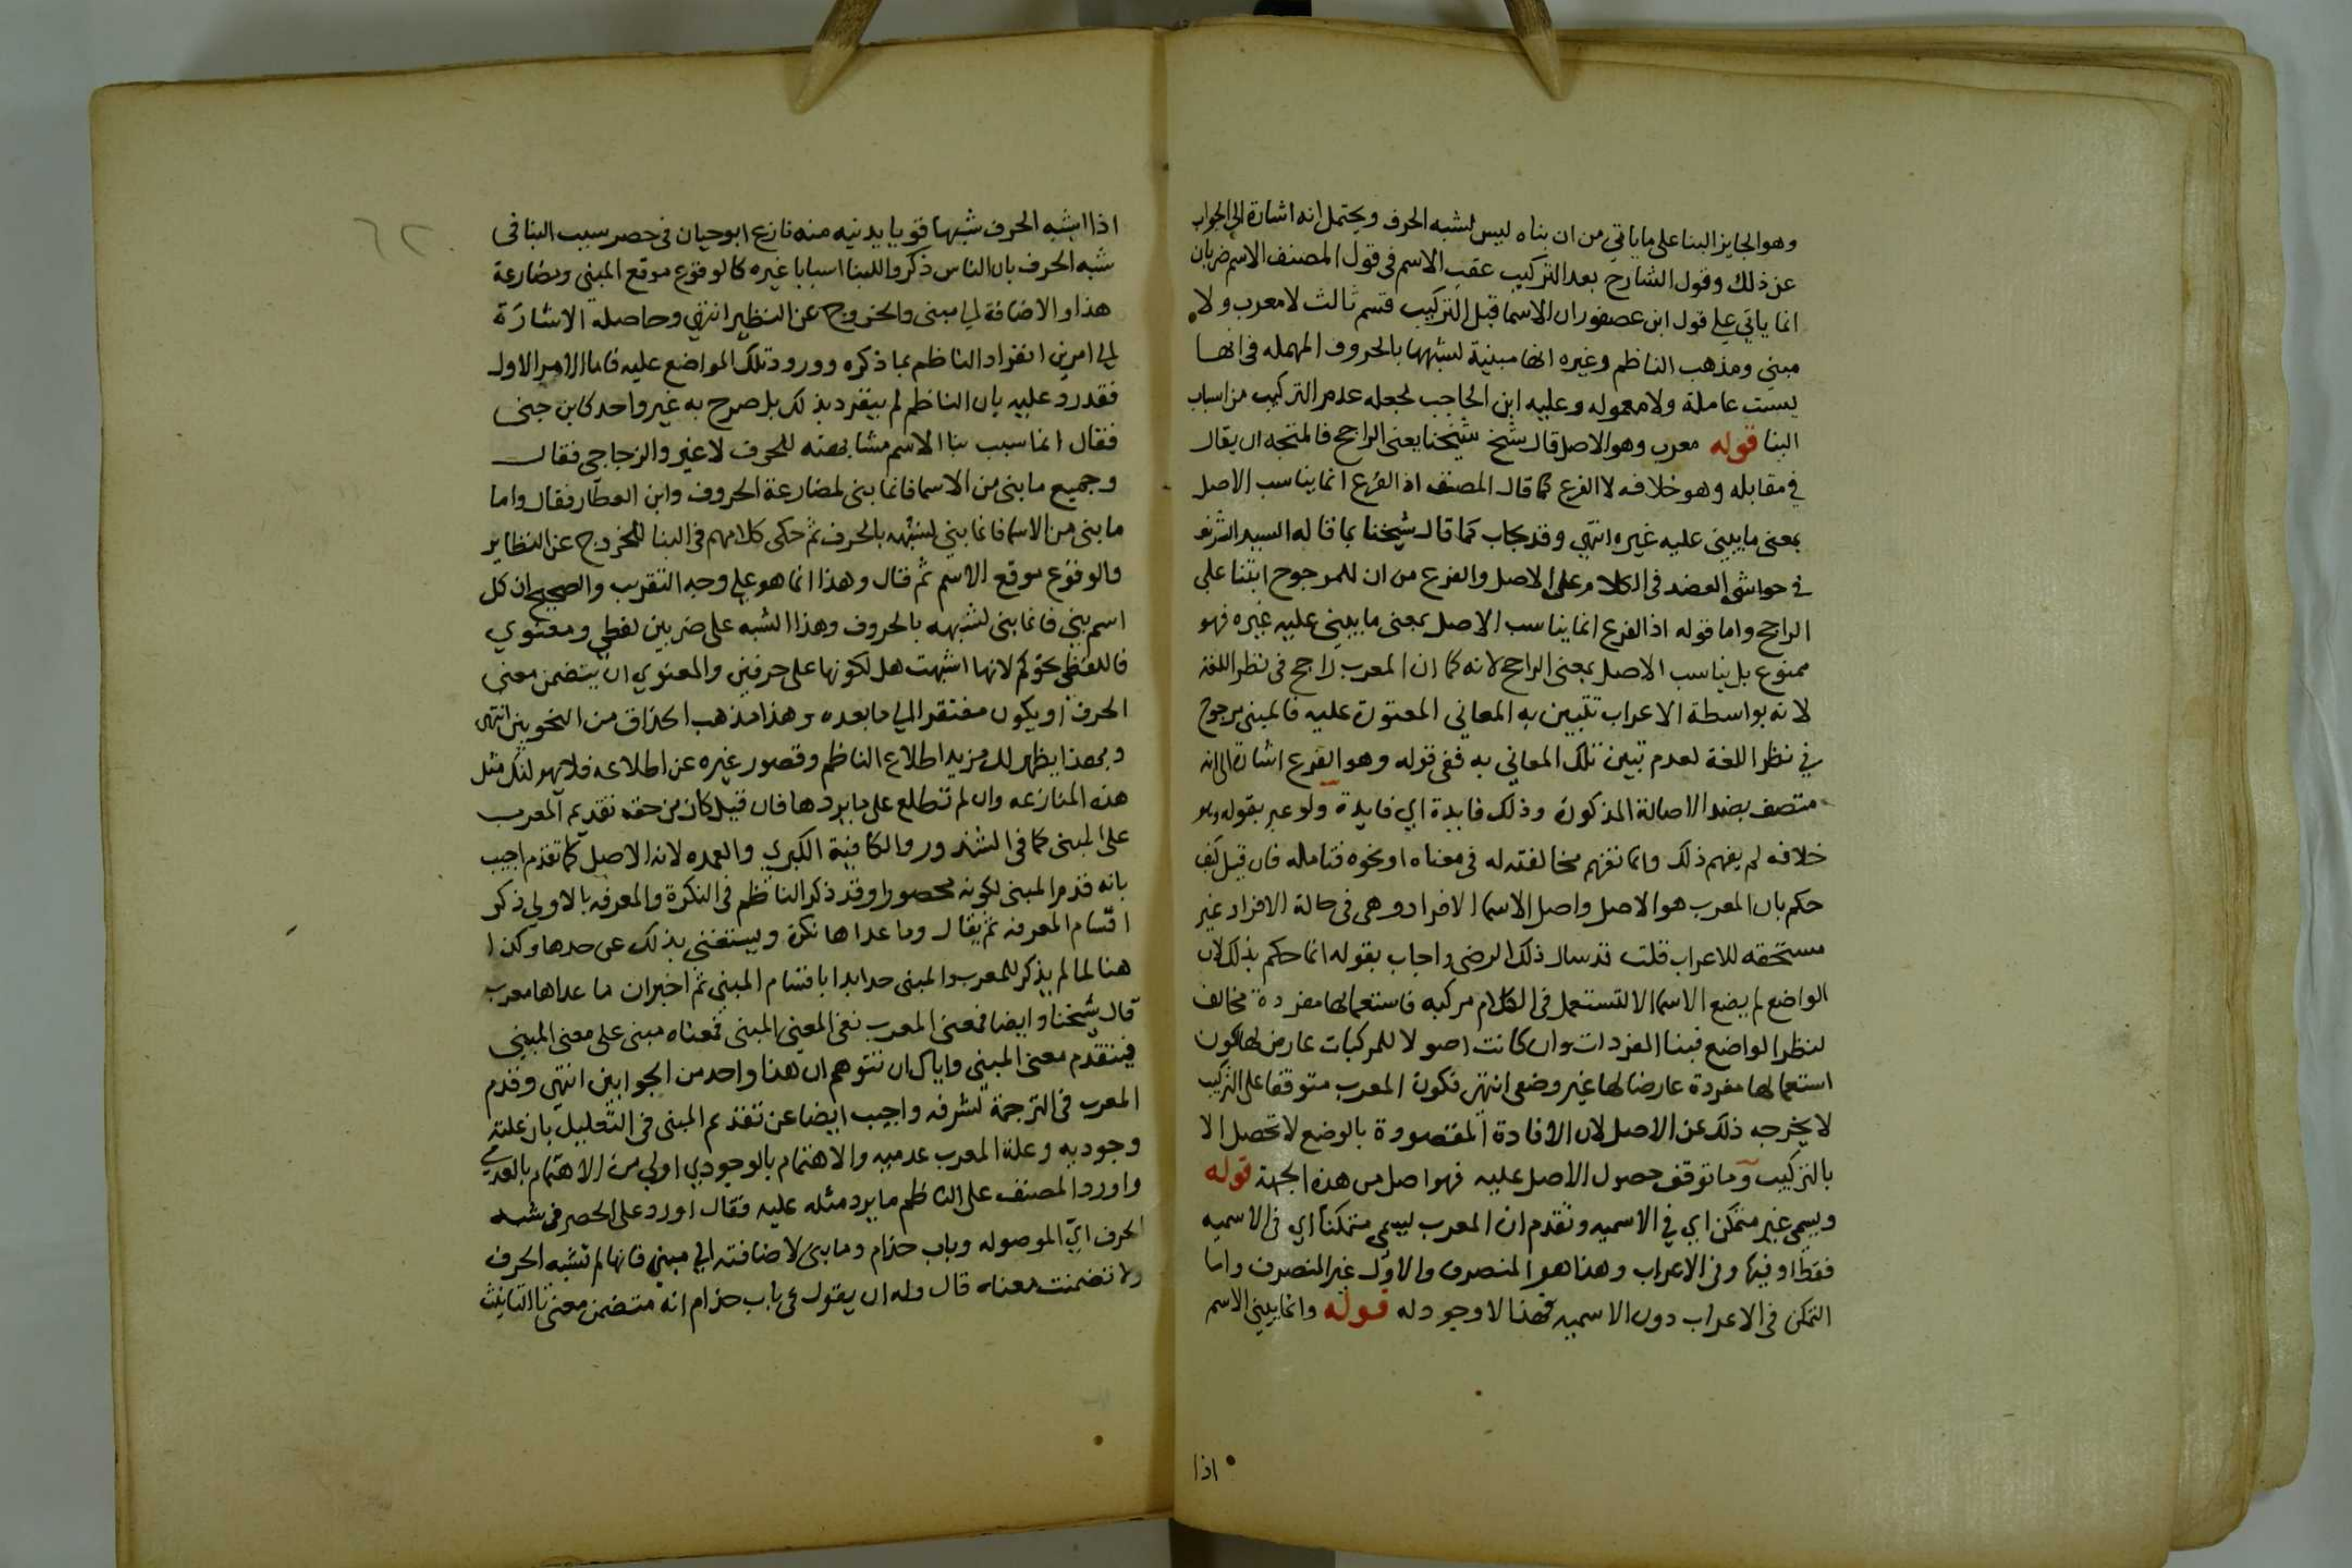 وهو الجايز البنا على ما ياتي من ان بناه ليس لشبه الحرف ويحتمل انه اشارة الى الجواب
عن ذلك وقول الشارح بعد التركيب عقب الاسم في قول المصنف الاسم ضربان
انما ياتي على قول ابن عصفور ان الاسما قبل التركيب قسم ثالث لا معرب ولا
مبني ومذهب الناظم وغيره انها مبنية لشبهها بالحروف المهمله في انها
ليست عاملة ولا معموله وعليه ابن الحاجب لجعله عدم التركيب من اسباب
البنا قوله معرب وهو الاصل قال شيخ شيخنا يعني الراجح فالمتجه ان يقال
في مقابله وهو خلافه لا الفرع كما قال المصنف اذ الفرع انما يناسب الاصل
بمعنى ما يبنى عليه غيره انتهى وقد يجاب كما قال شيخنا بما قاله السيد الشريف
في حواشي العضد في الكلام على الاصل والفرع من ان للمرجوح ابتنا على
الراجح واما قوله اذ الفرع انما يناسب الاصل بمعنى ما يبنى عليه غيره فهو
ممنوع بل يناسب الاصل بمعنى الراجح لانه كما ان المعرب راجح في نظر اللغة
لانه بواسطة الاعراب تتبين به المعاني المعتورة عليه فالمبني مرجوح
في نظر اللغة لعدم تبين تلك المعاني به ففي قوله وهو الفرع اشارة الى انه
متصف بضد الاصالة المذكورة وذلك فايدة اي فايدة ولو عبر بقوله وهو
خلافه لم يفهم ذلك وانما تفهم مخالفته له في معناه او نحوه فتامله فان قيل كيف
حكم بان المعرب هو الاصل واصل الاسما الافراد وهي في حالة الافراد غير
مستحقه للاعراب قلت قد سال ذلك الرضي واجاب بقوله انما حكم بذلك لان
الواضع لم يضع الاسما الا لتستعمل في الكلام مركبه فاستعمالها مفردة مخالف
لنظر الواضع فبنا المفردات وان كانت اصولا للمركبات عارض لها لكون
استعمالها مفردة عارضا لها غير وضعي انتهى فكون المعرب متوقفا على التركيب
لا يخرجه ذلك عن الاصل لان الافادة المقصودة بالوضع لا تحصل الا
بالتركيب وما توقف حصول الاصل عليه فهو اصل من هذه الجهة قوله
ويسمى غير متمكن اي في الاسميه وتقدم ان المعرب يسمى متمكنا اي في الاسميه
فقط او فيها وفي الاعراب وهذا هو المنصرف والاول غير المنصرف واما
التمكن في الاعراب دون الاسميه فهذا لا وجود له قوله وانما يبنى الاسم
اذا
٦٢
اذا اشبه الحرف شبها قويا يدنيه منه نازع ابو حيان في حصر سبب البنا في
شبه الحرف بان الناس ذكروا للبنا اسبابا غيره كالوقوع موقع المبنى ومضارعة
هذا والاضافة الى مبنى والخروج عن النظير انتهى وحاصله الاشارة
الى امرين انفراد الناظم بما ذكره وورود تلك المواضع عليه فاما الامر الاول
فقد رد عليه بان الناظم لم ينفرد بذلك بل صرح به غير واحد كابن جني
فقال انما سبب بنا الاسم مشابهته للحرف لا غير والزجاجي فقال
وجميع ما بنى من الاسما فانما بنى لمضارعة الحروف وابن العطار فقال واما
ما بنى من الاسما فانما بني لشبهه بالحرف ثم حكى كلامهم في البنا للخروج عن النظاير
والوقوع موقع الاسم ثم قال وهذا انما هو على وجه التقريب والصحيح ان كل
اسم بني فانما بنى لشبهه بالحروف وهذا الشبه على ضربين لفظي ومعنوي
فاللفظي نحو كم لانها اشبهت هل لكونها على حرفين والمعنوي ان يتضمن معنى
الحرف او يكون مفتقرا الى ما بعده وهذا مذهب الحذاق من النحويين انتهى
وبهذا يظهر لك مزيد اطلاع الناظم وقصور غيره عن اطلاعه فلا يهولنك مثل
هذه المنازعه وان لم تطلع على ما يردها فان قيل كان من حقه تقديم المعرب
على المبنى كما في الشذور والكافية الكبرى والعمده لانه الاصل كما تقدم اجيب
بانه قدم المبنى لكونه محصورا وقد ذكر الناظم في النكرة والمعرفه بالاولى ذكر
اقسام المعرفه ثم يقال وما عداها نكرة ويستغنى بذلك عن حدها وكذا
هنا لما لم يذكر للمعرب والمبنى حدا بدا باقسام المبنى ثم اخبر ان ما عداها معرب
قال شيخنا وايضا فمعنى المعرب نفي المعنى المبنى فمعناه مبنى على معنى المبنى
فيتقدم معنى المبنى واياك ان تتوهم ان هذا واحد من الجوابين انتهى وقدم
المعرب في الترجمة لشرفه واجيب ايضا عن تقديم المبنى في التعليل بان علته
وجوديه وعلة المعرب عدميه والاهتمام بالوجودي اولى من الاهتمام بالعدمي
واورد المصنف على الناظم ما يرد مثله عليه فقال اورد على الحصر في شبه
الحرف اي الموصوله وباب حذام وما بنى لاضافته الى مبنى فانها لم تشبه الحرف
ولا تضمنت معناه قال وله ان يقول في باب حذام انه متضمن معنى تا التانيث